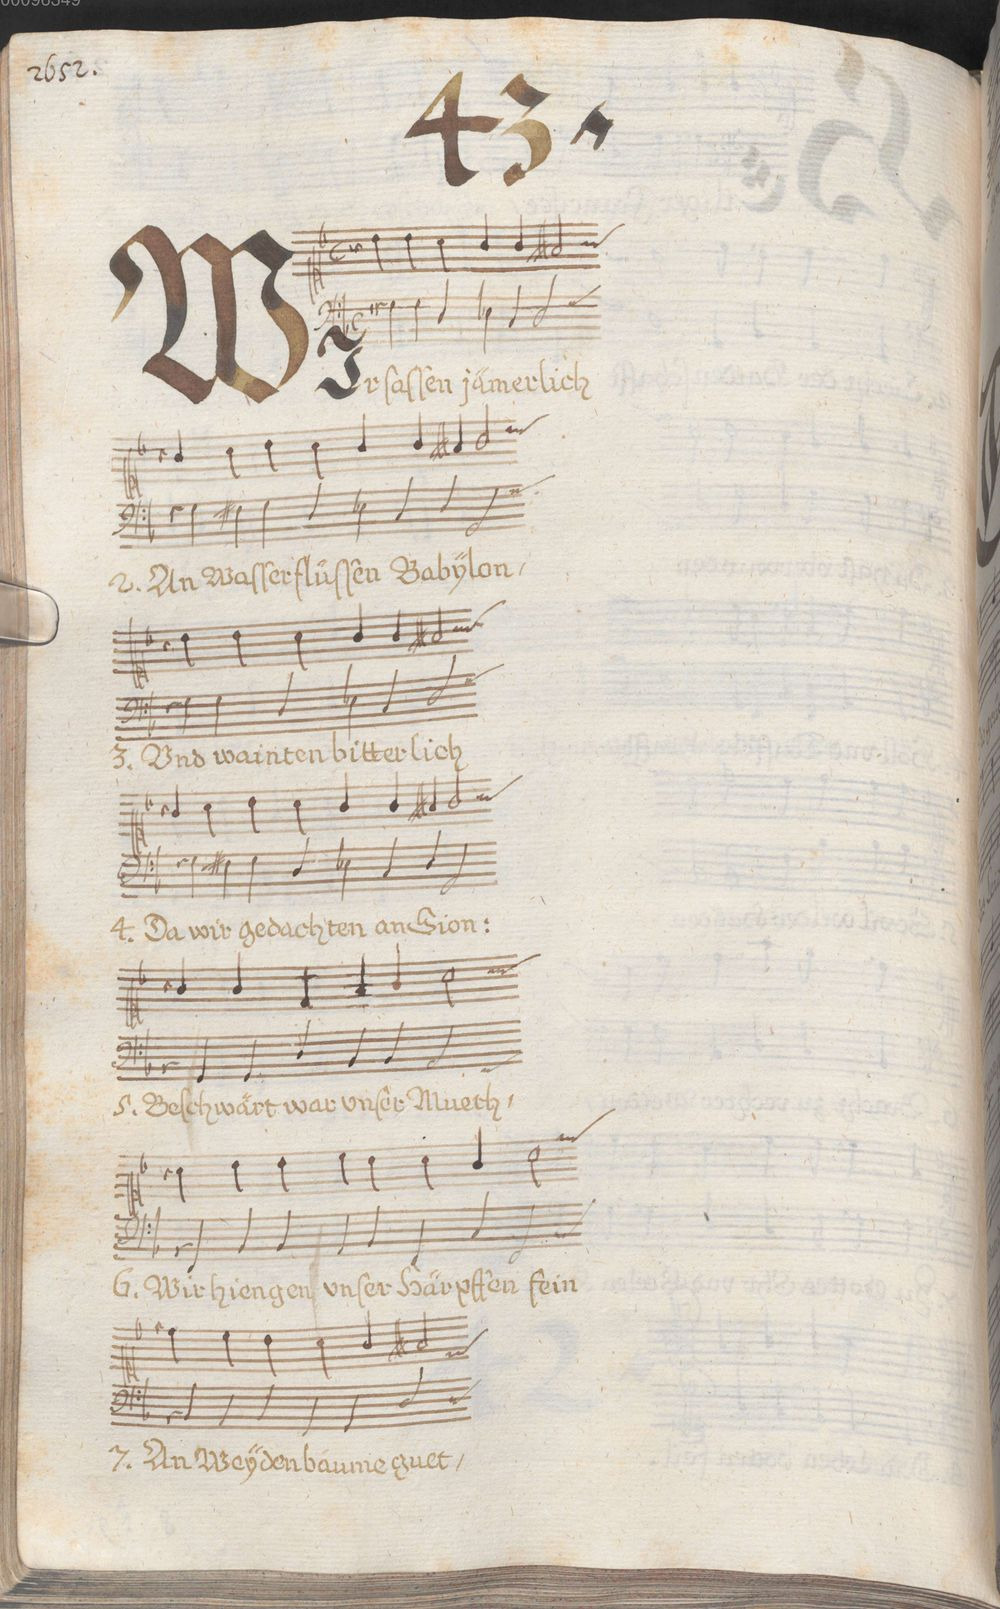 00096349
2652.
43.
WIr sassen jämerlich
2. An Wasserflüssen Babÿlon,
3. Vnd wainten bitterlich
4. Da wir gedachten an Sion:
5. Beschwärt war vnser Mueth,
6. Wir hiengen vnser Härpffen fein
7. An Weÿdenbäume guet,